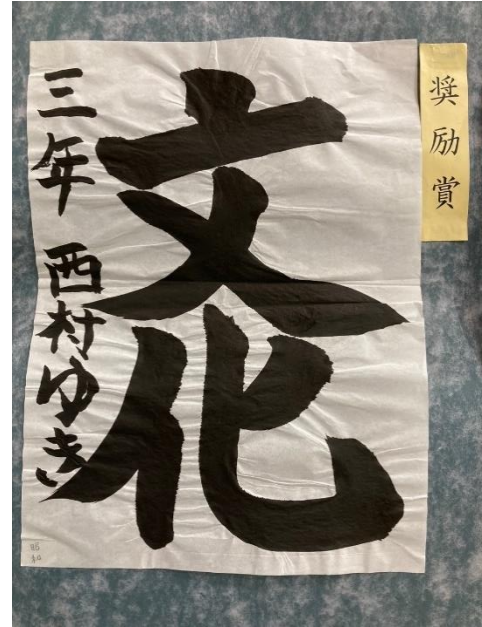 奨励賞
文化
三年 西村ゆき
昭和